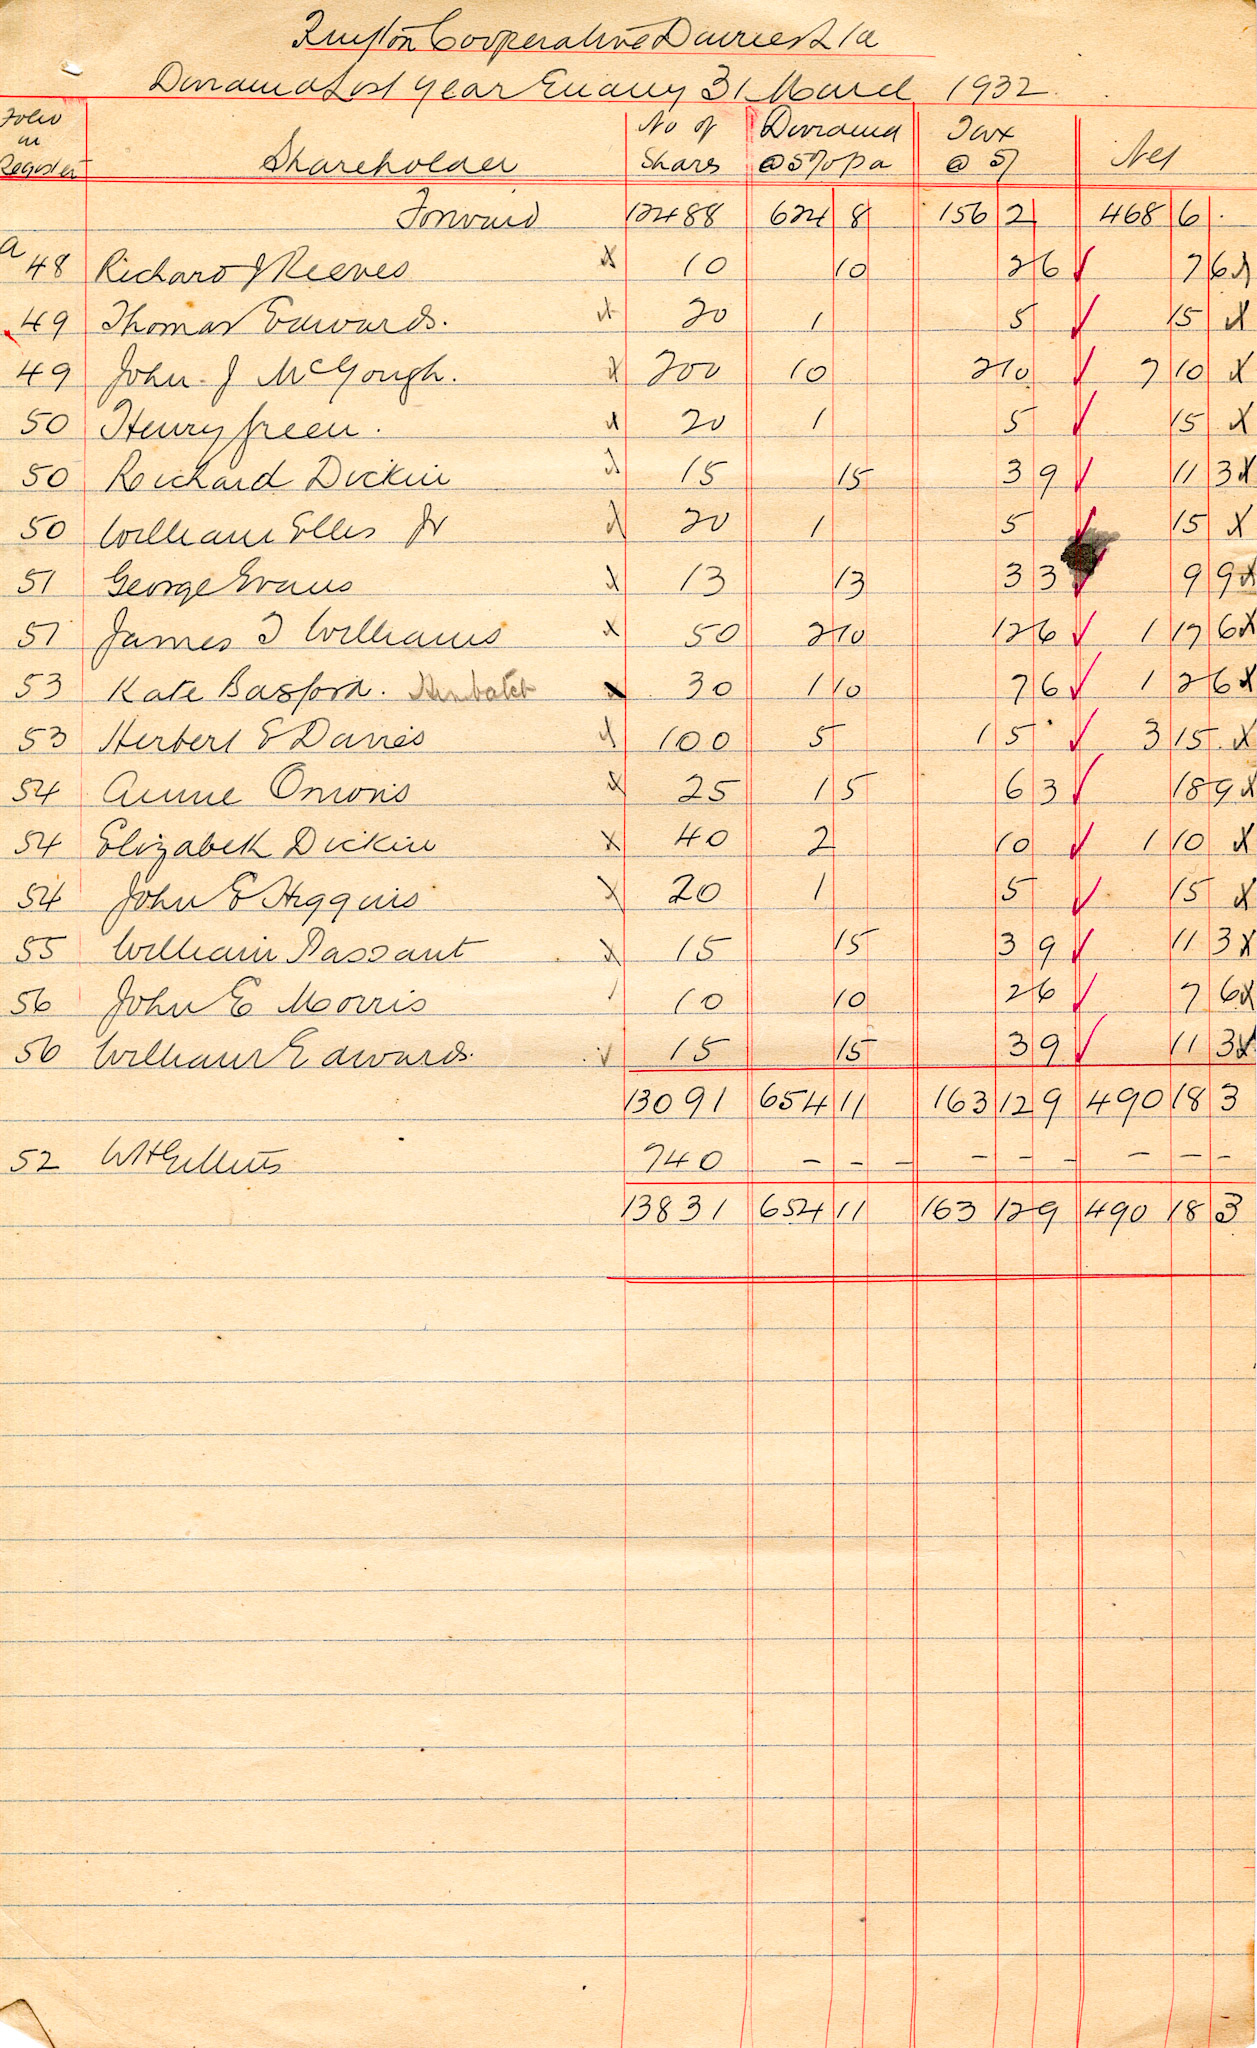 Ruyton Cooperative Dairies Ltd
Dividend List Year Ending 31 March 1932.
Folio in Register Shareholder No of Shares Dividend @ 5% pa Tax @ 5/ Net
Forward 12488 624 8 156 2 468 6 .
a 48 Richard J Reeves x 10 10 2 6 ✓ 7 6 x
49 Thomas Edwards. x 20 1 5 ✓ 15 x
49 John J McGough. x 200 10 2 10 ✓ 7 10 x
50 Henry Green. x 20 1 5 ✓ 15 x
50 Richard Dickin x 15 15 3 9 ✓ 11 3 x
50 William Ellis Jr x 20 1 5 ✓ 15 x
51 George Evans x 13 13 3 3 ✓ 9 9 x
51 James T Williams x 50 2 10 12 6 ✓ 1 17 6 x
53 Kate Basford. x 30 1 10 7 6 ✓ 1 2 6 x
53 Herbert E Davies x 100 5 1 5 ✓ 3 15 x
54 Annie Onions x 25 1 5 6 3 ✓ 18 9 x
54 Elizabeth Dickin x 40 2 10 ✓ 1 10 x
54 John E Higgins x 20 1 5 ✓ 15 x
55 William Passant x 15 15 3 9 ✓ 11 3 x
56 John E Morris / 10 10 2 6 ✓ 7 6 x
56 William Edwards. ✓ 15 15 3 9 ✓ 11 3 x
13091 654 11 163 12 9 490 18 3
52 W H 740 – – – – – – – – –
13831 654 11 163 12 9 490 18 3